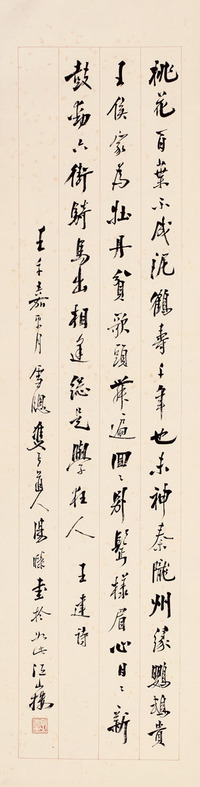 桃花百葉不成泥鶴壽千年也未神秦隴州緣鸚鵡貴
王侯家為牡丹貧歌頭舞遍回〻别鬢様眉心日〻新
鼓動六街騎馬出相逢總是學狂人 王建詩
壬午嘉平月雪隱雙百道人陳 書於 江山樓